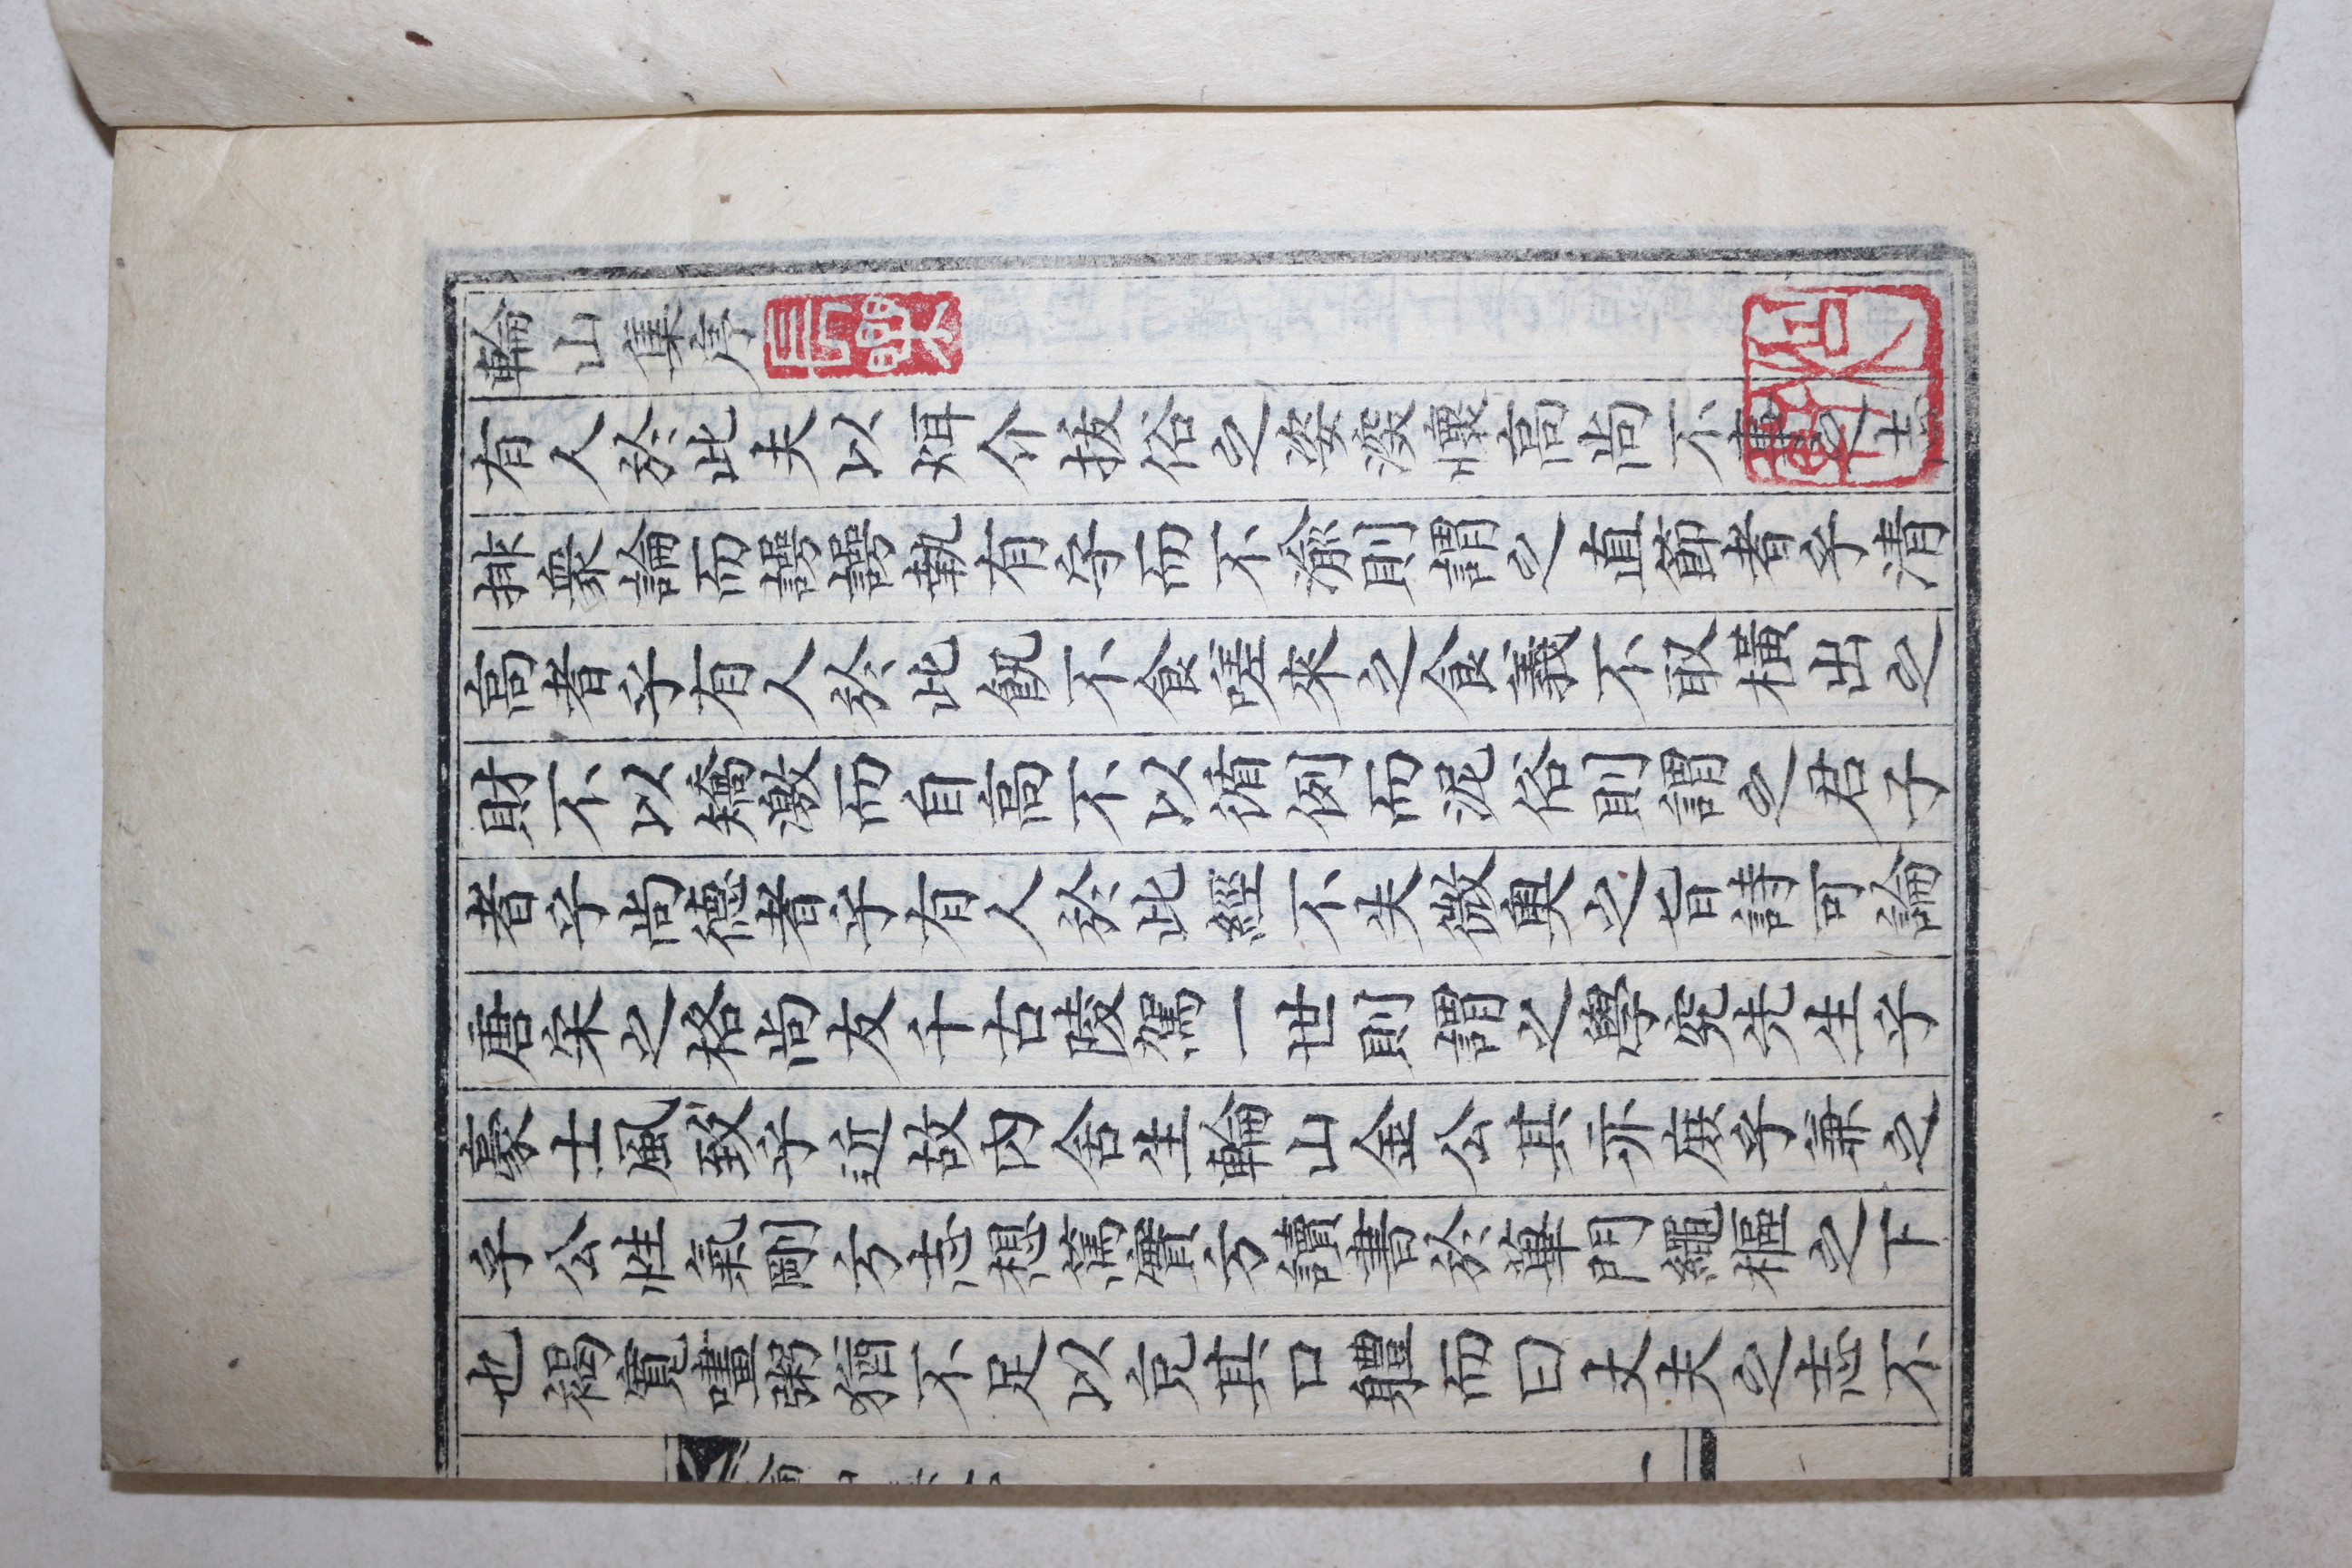 輪山集序
有人於此夫以炯介拔俗之姿深懷高尚不事之志
排衆論而謣謣執有守而不渝則謂之直節者乎清
高者乎有人於此飢不食嗟來之食義不取橫出之
財不以矯激而自高不以循例而泥俗則謂之君子
者乎尚德者乎有人於此經不失微奧之旨詩可論
唐宋之格尚友千古陵駕一世則謂之學究先生乎
豪士風致乎近故內舍生輪山金公其亦庶乎兼之
乎公性氣剛方志想篤實方讀書於蓽門繩樞之下
也褐寬嚍粥猶不足以充其口軆而曰丈夫之志不